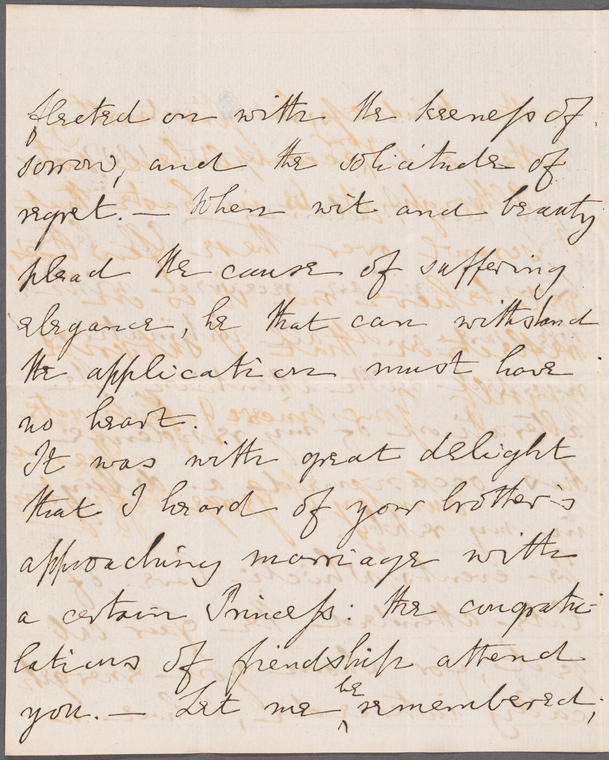 flected on with the keeness of
sorrow, and the solicitude of
regret. — When wit and beauty
plead the cause of suffering
elegance, he that can withstand
the application must have
no heart.
It was with great delight
that I heard of your brother's
approaching marriage with
a certain Princess: the congratu-
lations of friendship attend
you. — Let me ^be remembered,